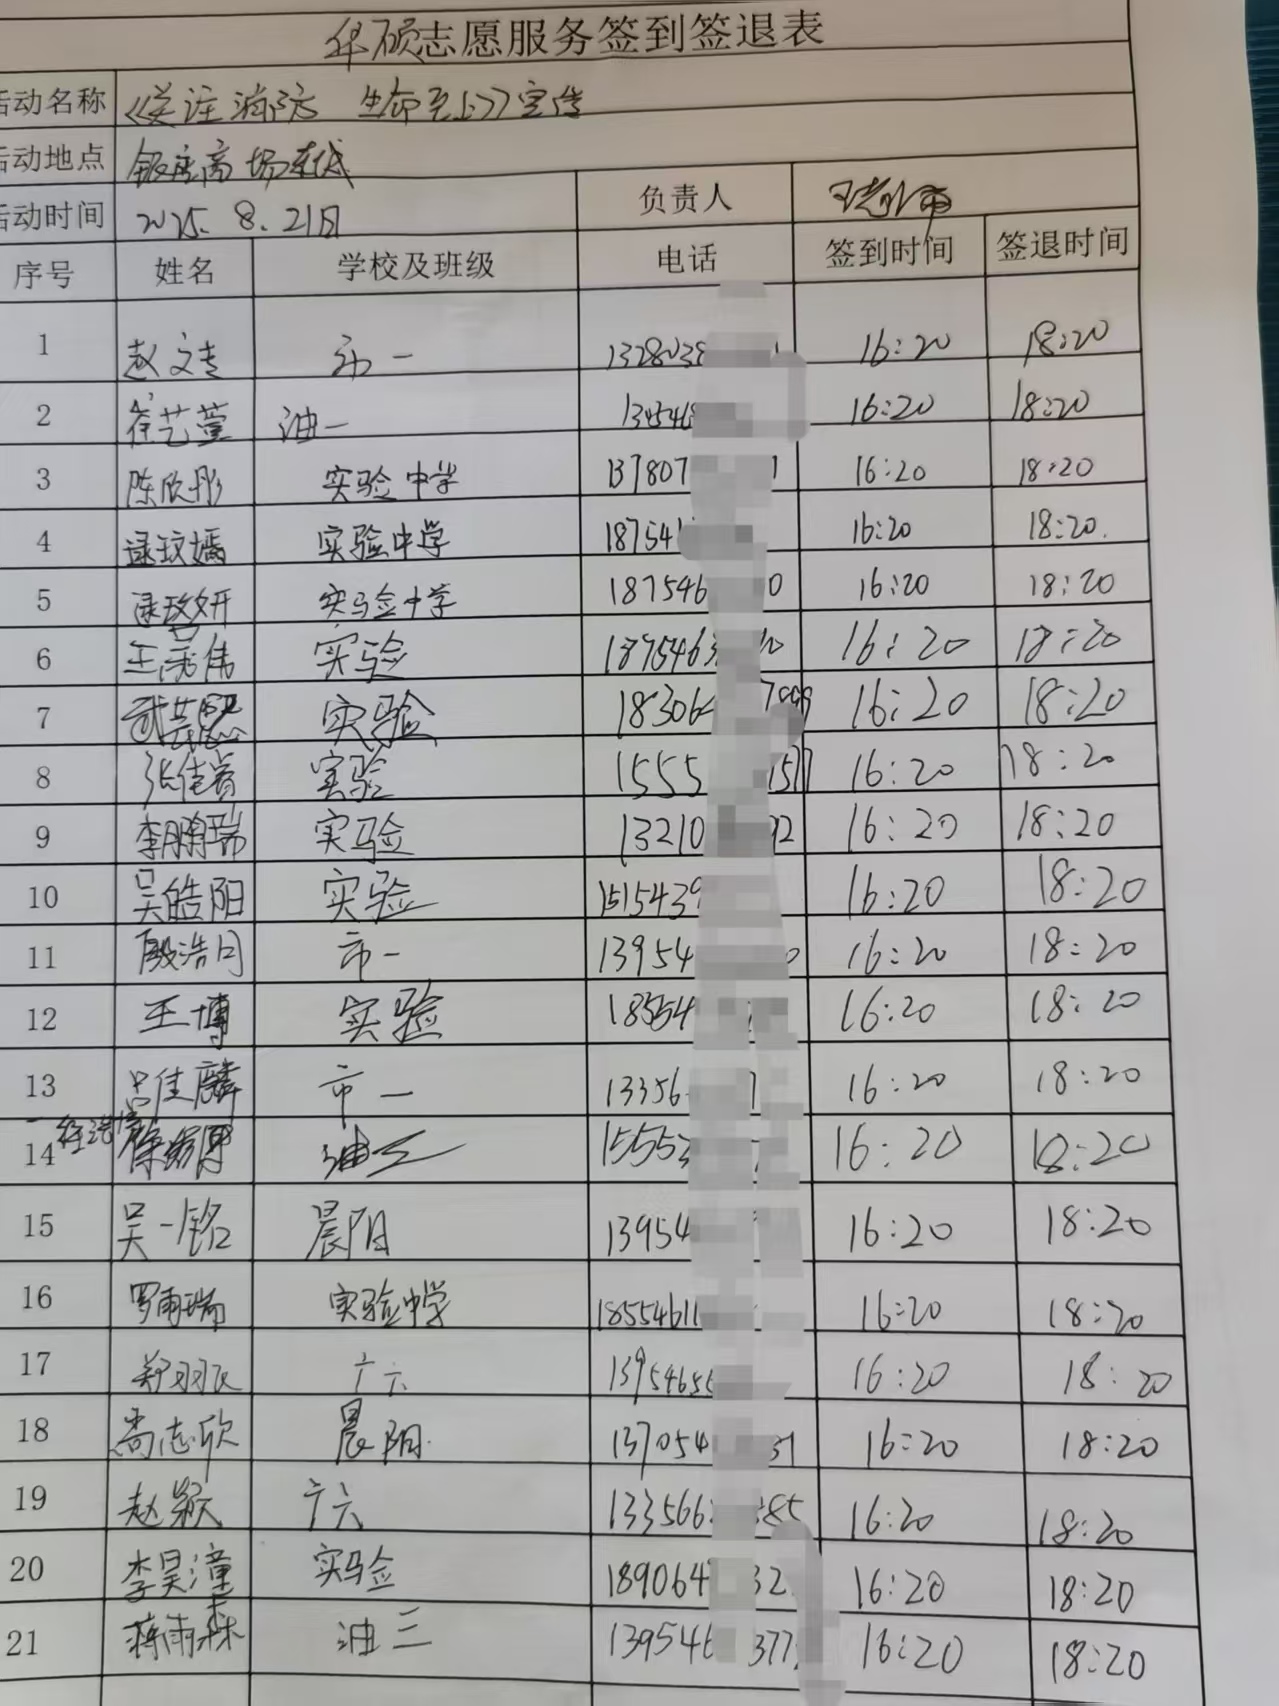 华硕志愿服务签到签退表
活动名称 《关注消防 生命至上》宣传
活动地点 银座商场东城
活动时间 2025.8.21日 负责人
序号 姓名 学校及班级 电话 签到时间 签退时间
1 赵文 一 16:20 18:20
2 崔艺萱 油一 16:20 18:20
3 陈欣彤 实验中学 137807 16:20 18:20
4 逯玟嫣 实验中学 18754 16:20 18:20.
5 逯 妍 实验中学 187546 0 16:20 18:20
6 王 伟 实验 1875463 16:20 18:20
7 武 实验 18306 16:20 18:20
8 张佳睿 实验 1555 157 16:20 18:20
9 李鹏瑞 实验 13210 92 16:20 18:20
10 吴皓阳 实验 1515439 16:20 18:20
11 殷浩 市一 13954 0 16:20 18:20
12 王博 实验 18554 16:20 18:20
13 吕佳麟 市一 13356 16:20 18:20
14 油 15553 16:20 18:20
15 吴一铭 晨阳 13954 16:20 18:20
16 罗雨瑞 实验中学 18554611 16:20 18:20
17 郑羽辰 广六 1395465 16:20 18:20
18 尚志欣 晨阳 137054 31 16:20 18:20
19 赵颖 广六 133566 85 16:20 18:20
20 李昊潼 实验 189064 32 16:20 18:20
21 蒋雨霖 油三 139546 377 16:20 18:20